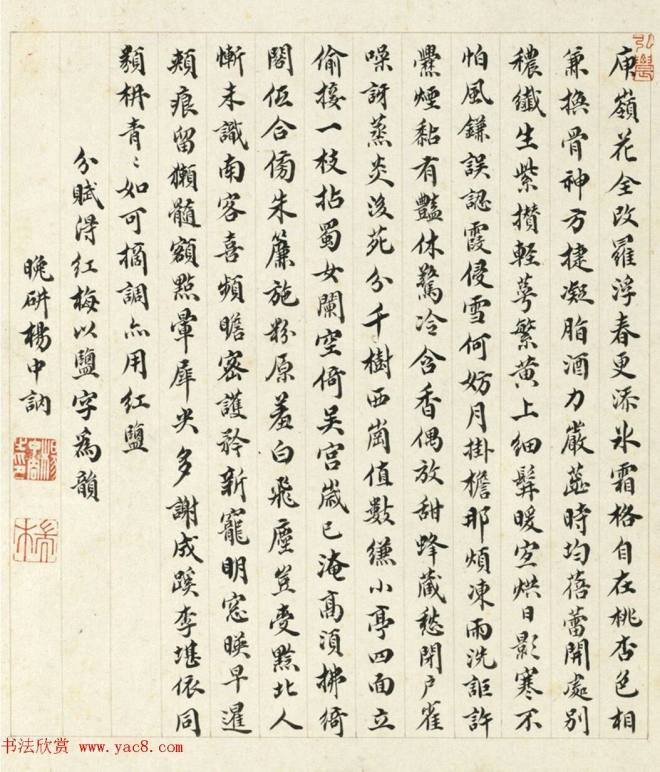 庾嶺花全改羅浮春更添氷霜格自在桃杏色相
兼換骨神方捷凝脂酒力嚴蕋時均蓓蕾開處別
穠纖生紫攢輕萼繁黄上細髯暖宜烘日影寒不
怕風鎌誤認霞侵雪何妨月掛檐那煩凍雨洗詎許
爨煙黏有豔休驚冷含香偶放甜蜂蔵愁閉戶雀
噪訝蒸炎後苑分千樹西崗值數縑小亭四面立
偷接一枝拈蜀女闌空倚吴宮嵗已淹髙須拂綺
閣低合傍朱簾施粉原羞白飛塵豈受黔北人
慚未識南客喜頻瞻密護矜新寵明窓暎早暹
頰痕留獺髓額點暈犀尖多謝成蹊李堪依同
類枏青〻如可摘調亦用紅鹽
分賦得紅梅以鹽字為韻
晚研楊中訥
书法欣赏 www.yac8.com